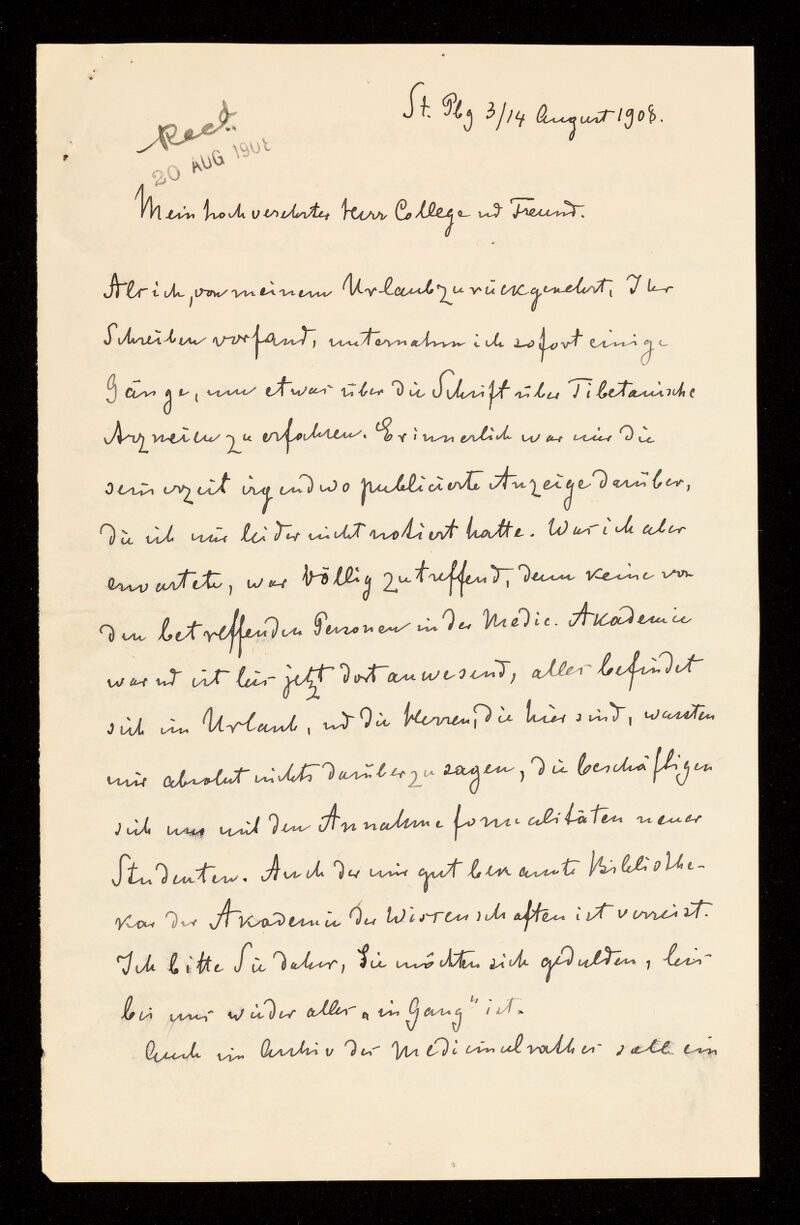 St. Pbg 3/14 August 1908.
Recd.
20 AUG 1908
Mein hochverehrter Herr College ud Freund.
Als ich, von meinem Urlaub zurückgekehrt, Ihr
Schreiben vorfand, unternahm ich sofort einige
Gänge, um etwas über die Schrift über Tibetanische
Arzneien zu erfahren. Erinnerlich war mir die
seinerzeit irgendwo publicierte Anzeige darüber,
die ich mir leider nicht notiert hatte. Was ich aber
erwartete, war völlig zutreffend, denn keine von
den betreffenden Personen in der Medic. Akademie
war ud ist bis jetzt dort anwesend, alles befindet
sich im Urlaub, ud die Herren, die hier sind, wussten
mir absolut nichts darüber zu sagen, die beschäftigen
sich nur mit den Annahmeformalitäten neuer
Studenten. Auch der mir gut bekannte Bibliothe-
kar der Akademie der Wissenschaften ist verreist.
Ich bitte Sie daher, Sie möchten sich gedulden, bis
bei uns wieder alles „in Gang" ist.
Auch im Archiv des Medicinalrathes soll ein